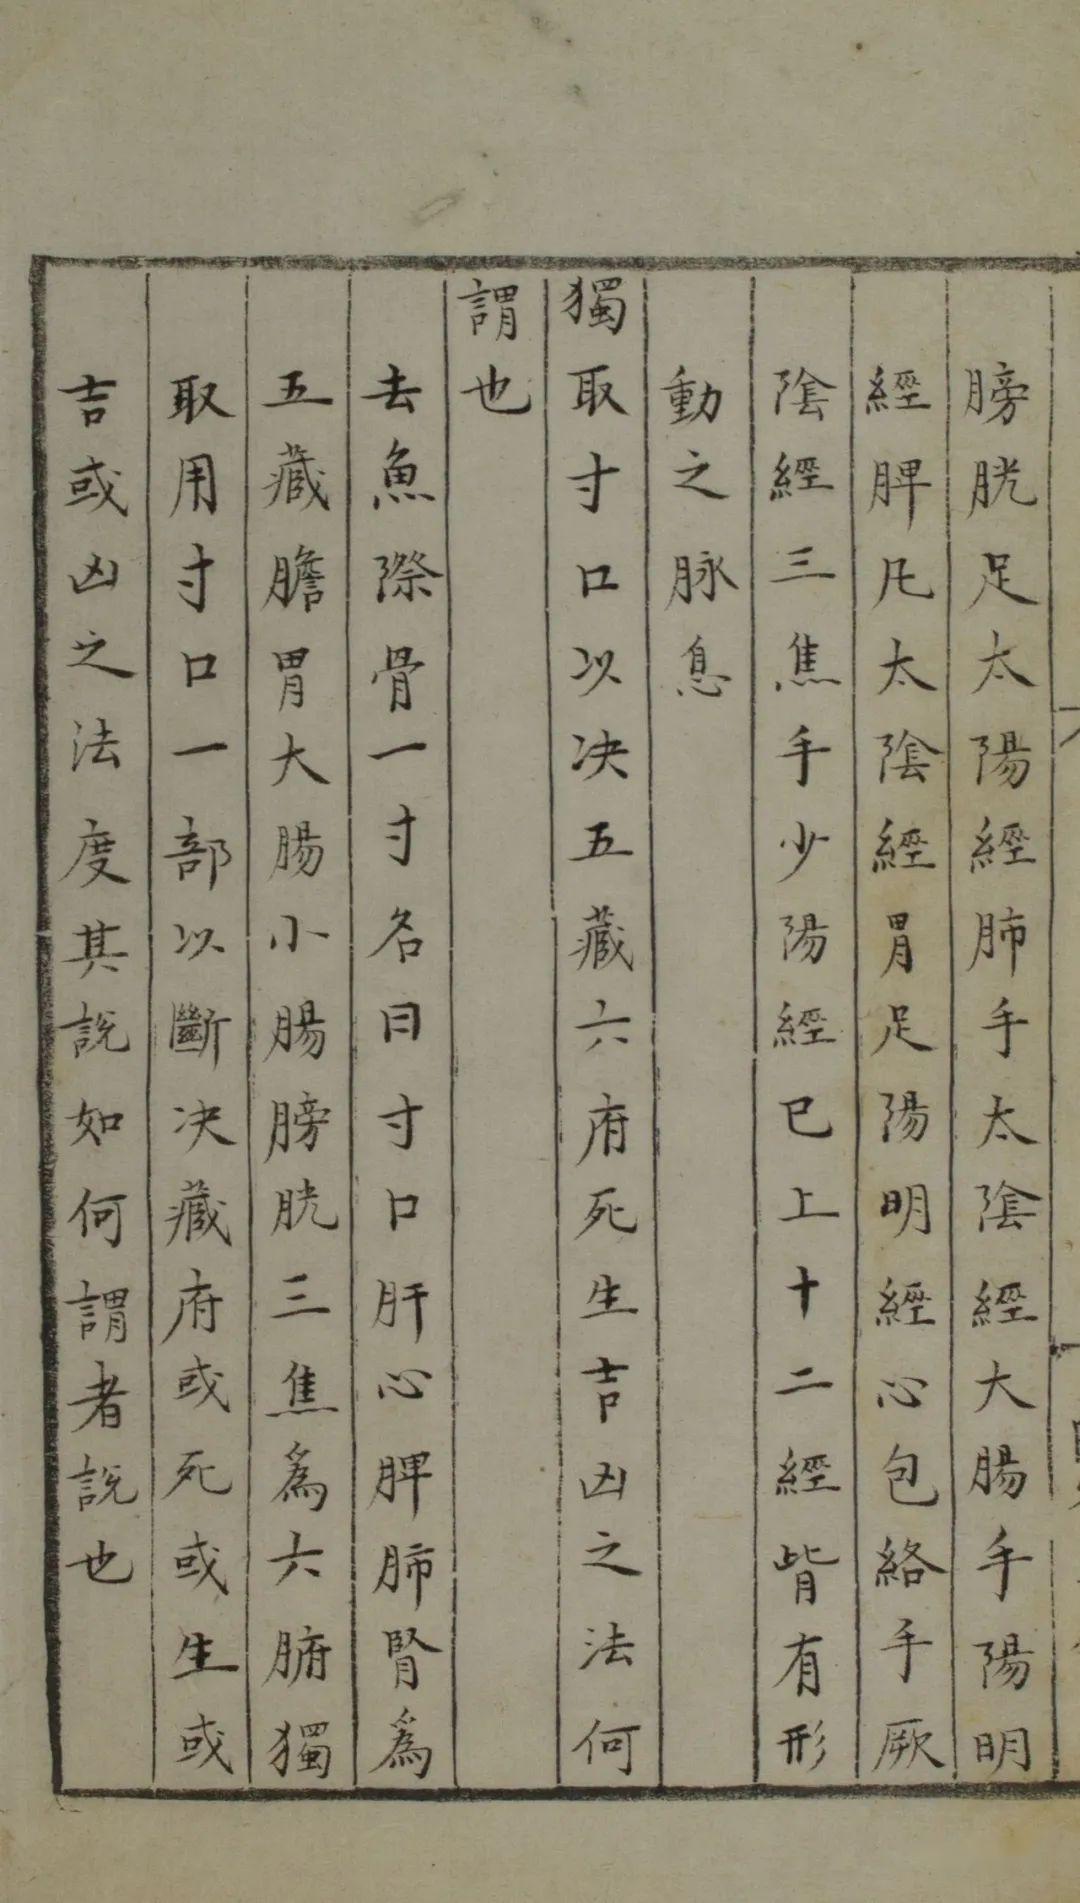 膀胱足太陽經肺手太陰經大腸手陽明
經脾足太陰經胃足陽明經心包絡手厥
陰經三焦手少陽經已上十二經皆有形
動之脉息
獨取寸口以决五藏六府死生吉凶之法何
謂也
去魚際骨一寸名曰寸口肝心脾肺腎為
五藏膽胃大腸小腸膀胱三焦為六腑獨
取用寸口一部以斷决藏府或死或生或
吉或凶之法度其說如何謂者說也